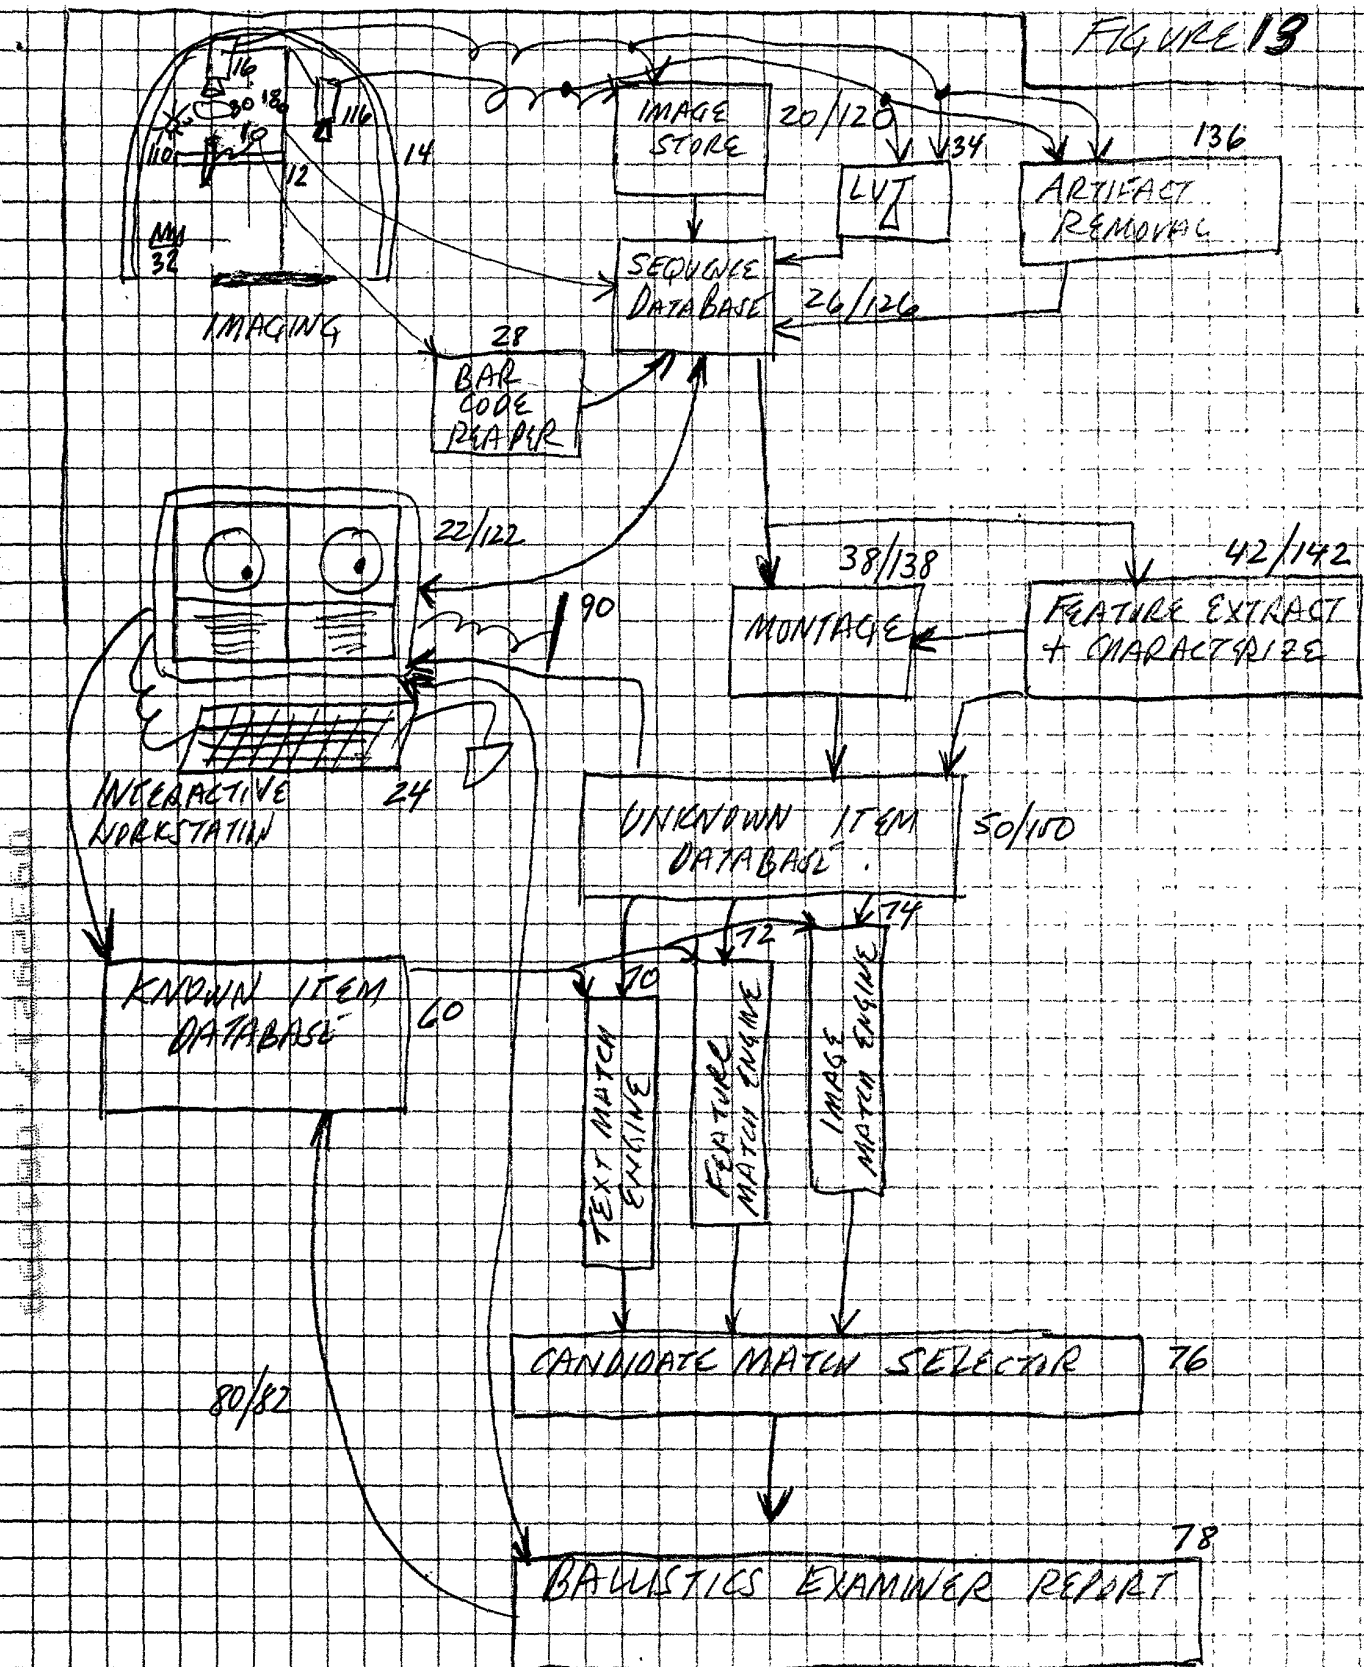 FIGURE 13
16
30
180
116
10
110
12
14
32
IMAGING
IMAGE
STORE
20/120
34
LUT
136
ARTIFACT
REMOVAL
SEQUENCE
DATABASE
26/126
28
BAR
CODE
READER
22/122
90
38/138
MONTAGE
42/142
FEATURE EXTRACT
+ CHARACTERIZE
INTERACTIVE
WORKSTATION
24
UNKNOWN ITEM
DATABASE
50/150
KNOWN ITEM
DATABASE
60
70
72
74
TEXT MATCH
ENGINE
FEATURE
MATCH ENGINE
IMAGE
MATCH ENGINE
CANDIDATE MATCH SELECTOR
76
80/82
78
BALLISTICS EXAMINER REPORT